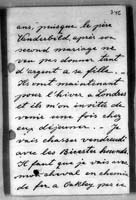 346
ans, puisque le père
Vanderbild, après son
second mariage ne
veu pas donner tant
d'argent a sa fille..
Ils vont maintenant
pour l'hiver a Londres
et ils m'on invité de
venir une fois chez
eux déjeuner.. Je
vais chasser vendredi
avec les Bicester hounds.
Il faut que je vais avec
mon cheval en chemin
de fer a Oakley, puis